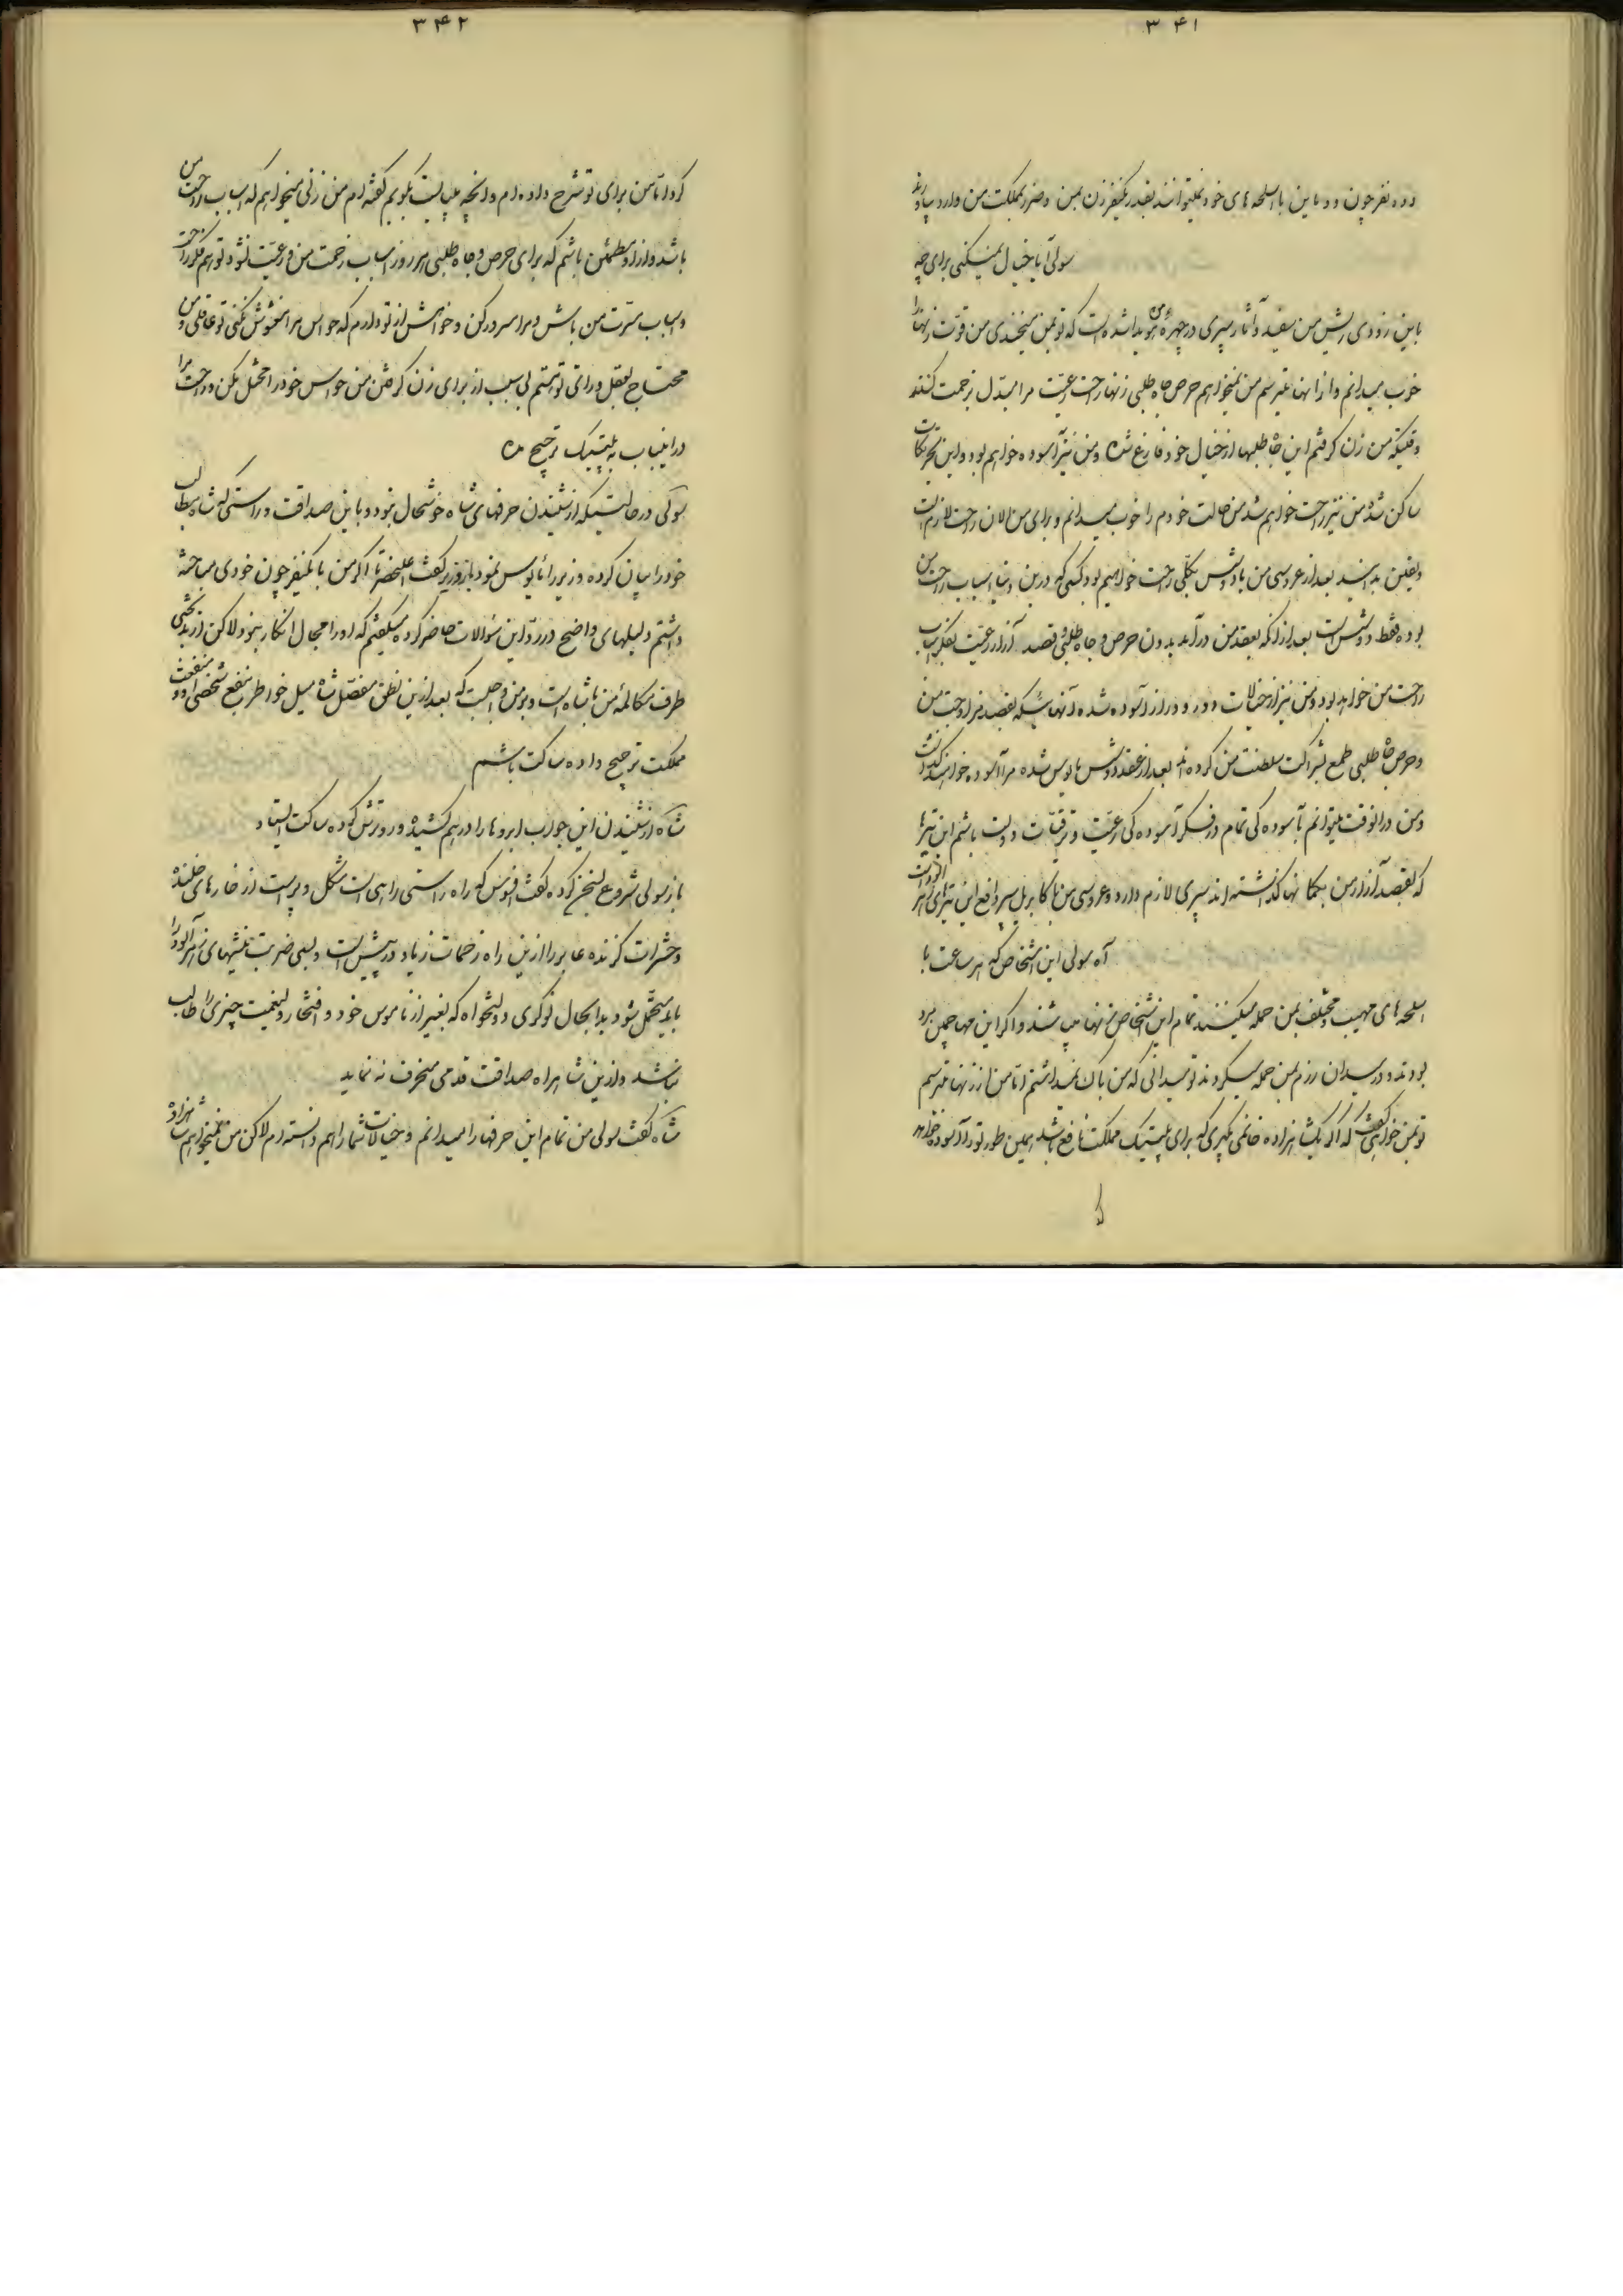 ۳۴۱
دوده نفر چون دوماین با اسلحه های خود نمیتوانند بقدر یکنفر زن بمن وضرر بمملکت من وارد بیاورند
سولی آیا خیال میکنی برای چه
باین زودی ریش من سفید و آثار پیری در چهرهٔ من هویدا شده است که تو بمن میخندی من قوّت زنها را
خوب میدانم و از آنها میترسم من نمیخواهم حرص جاه طلبی زنها راحت رعیت مرا مبدّل بزحمت کنند
وقتیکه من زن گرفتم این جاه طلبها از خیال خود فارغ شده و من نیز آسوده خواهم بود و این تحریکات
ساکن شده من نیز راحت خواهم شد من حالت خودم را خوب میدانم و برای من الان راحت لازم است
و یقین بدانید بعد از عروسی من با دوشس بکلّی راحت خواهیم بود کسی که درین دنیا اسباب راحت من
بوده فقط دوشس است بعد از آنکه بعقد من درآمد بدون حرص و جاه طلبی و قصد آزار رعیت بفکر اسباب
راحت من خواهد بود و من نیز از خیالات دور و دراز آسوده شده آنهائیکه قصد مزاوجت من
و حرص جاه طلبی طمع بشراکت سلطنت من کرده اند بعد از عقد دوشس مایوس شده مرا آسوده خواهند گذاشت
و من در آنوقت میتوانم بآسوده گی تمام در فکر آسوده گی رعیت و ترقیات دولت باشم این تیرها
که بقصد آزار من بکمانها گذاشته اند سپری لازم دارد و عروسی من با کابریل سپر دافع این تیرهای زهر آلود است
آه سولی این اشخاص که هر ساعت با
اسلحه های مهیب و مختلف بمن حمله میکنند تمام این اشخاص زنها میباشند و اگر این مهاجمین مرد
بودند و در میدان رزم بمن حمله میکردند تو میدانی که من باک نمیداشتم امّا من از زنها میترسم
تو بمن خواهی گفت که اگر یک شاهزاده خانمی بگیری که برای پلیتیک مملکت نافع باشد همین طور تو را آسوده خواهد
کرد
۳۴۲
کرد امّا من برای تو شرح داده ام و آنچه میبایست بگویم گفته ام من زنی میخواهم که اسباب راحت من
باشد و از او مطمئن باشم که برای حرص و جاه طلبی هر روز اسباب زحمت من و رعیت نشود تو هم فکر راحت
و اسباب مسرّت من باش و مرا مسرور کن و خواهش از تو دارم که حواس مرا مغشوش نکنی تو عاقلی و من
محتاج بعقل و رای تو هستم بی سبب از برای زن گرفتن من حواس خود را مختل مکن و راحت مرا
در اینباب به پلیتیک ترجیح ده
سولی در حالتیکه از شنیدن حرفهای شاه خوشحال نبود و با این صداقت و راستی که شاه مطالب
خود را بیان کرده وزیر را مایوس نمود باز وزیر گفت اعلیحضرتا اگر من با یکنفر چون خودی مباحثه
داشتم دلیلهای واضح در ردّ این سؤالات حاضر کرده میگفتم که او را مجال انکار نبود لاکن از بدبختی
طرف مکالمهٔ من پادشاه است و بر من واجب است که بعد ازین نطق مفصّل شاه میل خواطر و نفع شخصی او را بمنفعت
مملکت ترجیح داده ساکت باشم
شاه از شنیدن این جواب ابروها را در هم کشیده و رو ترش کرده ساکت ایستاد
باز سولی شروع بسخن کرده گفت افسوس که راه راستی راهی است مشکل و پر است از خارهای خلنده
و حشرات گزنده عابر را ازین راه زحمات زیاد در پیش است و بسی ضربت نیشهای زهر آلود را
باید متحمّل شود بدا بحال نوکری دولتخواه که بغیر از ناموس خود و افتخار ولینعمت چیزی را طالب
نباشد و ازین شاهراه صداقت قدمی منحرف نه نماید
شاه گفت سولی من تمام این حرفها را میدانم و خیالات شما را هم دانسته ام لاکن من نمیخواهم شاهزاده